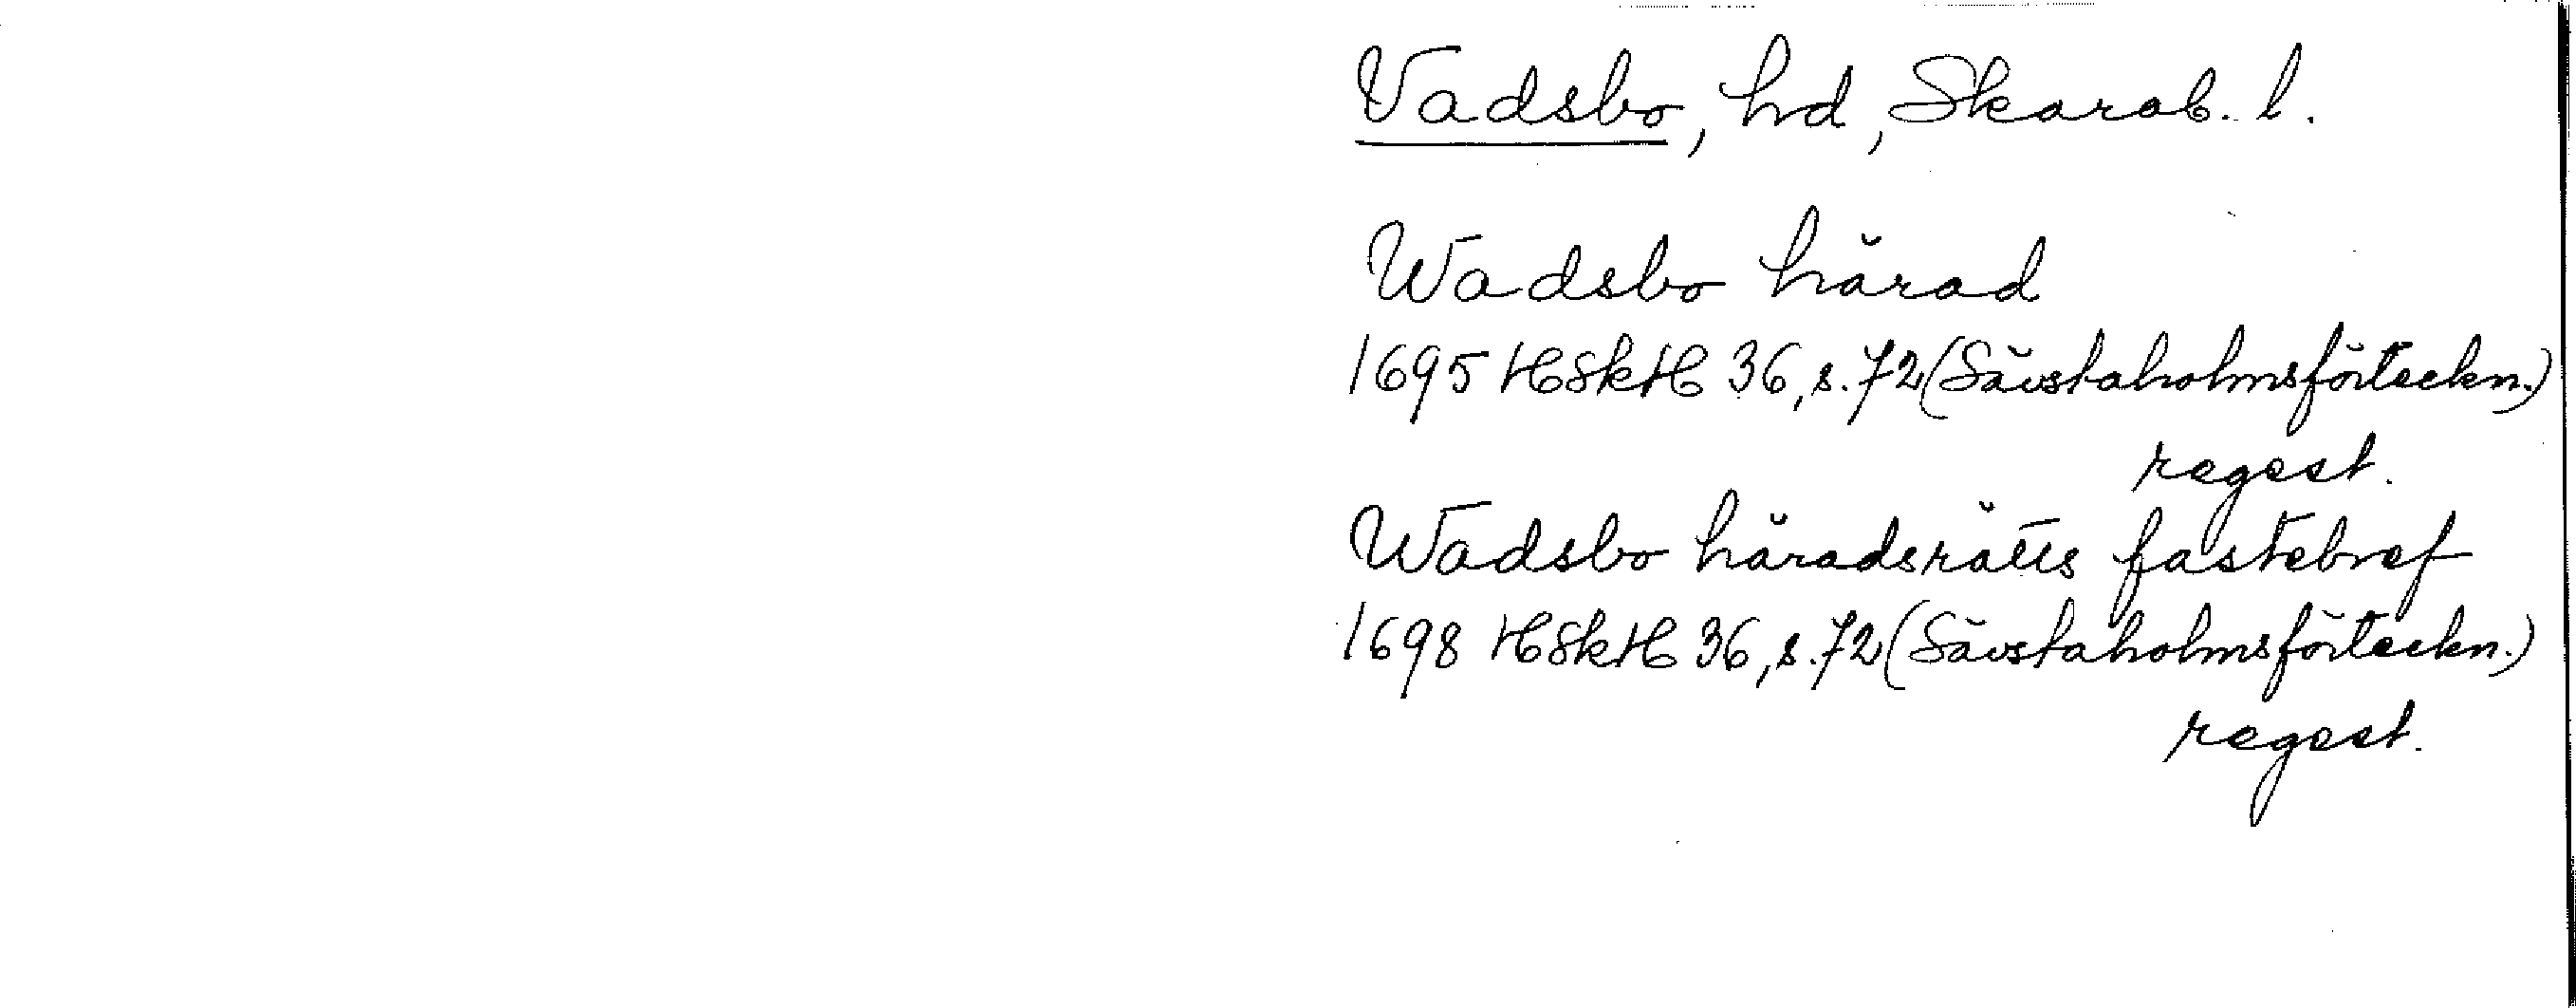 Vadsbo, hd, Skarab. l.
Wadsbo härad
1695 HSkH 36, s. 72 (Sävstaholmsförteckn.)
regest.
Wadsbo häradsrätts fastebref
1698 HSkH 36, s. 72 (Sävstaholmsförteckn.)
regest.